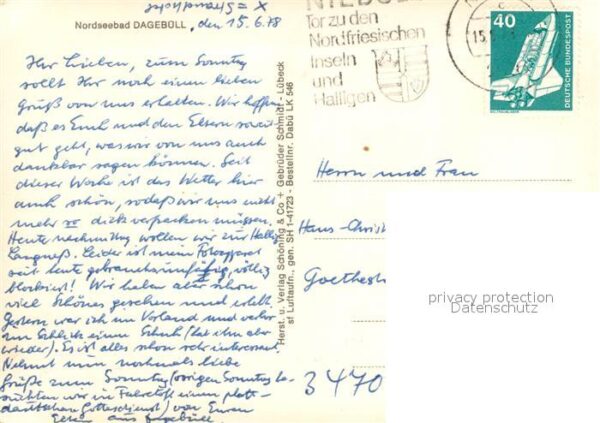 x = Strandhotel
Nordseebad DAGEBÜLL, den 15.6.78
Ihr Lieben, zum Sonntag
sollt Ihr noch einen lieben
Gruß von uns erhalten. Wir hoffen,
daß es Euch und den Eltern soweit
gut geht, was wir von uns auch
dankbar sagen können. Seit
dieser Woche ist das Wetter hier
auch schön, sodaß wir uns nicht
mehr so dick verpacken müssen.
Heute nachmittag wollen wir zur Hallig
Langneß. Leider ist mein Fotoapparat
seit heute gebrauchsunfähig, völlig
blockiert! Wir haben aber schon
viel Schönes gesehen und erlebt.
Gestern war ich im Vorland und verlor
im Schlick einen Schuh (hat ihn aber
wieder). Es ist alles schon sehr interessant.
Nehmt nun nochmals liebe
Grüße zum Sonntag (vorigen Sonntag be-
suchten wir in Fahretoft einen platt-
deutschen Gottesdienst) von Euren
Eltern aus Dagebüll.
Herst. u. Verlag Schöning & Co + Gebrüder Schmidt - Lübeck
sf Luftaufn., gen. SH 1-41723 - Bestellnr. Dabü LK 546
Tor zu den
Nordfriesischen
Inseln
und
Halligen
15.
40
DEUTSCHE BUNDESPOST
WELTRAUMLABOR
Herrn und Frau
Hans-Christ
Goethestr
3470
privacy protection
Datenschutz